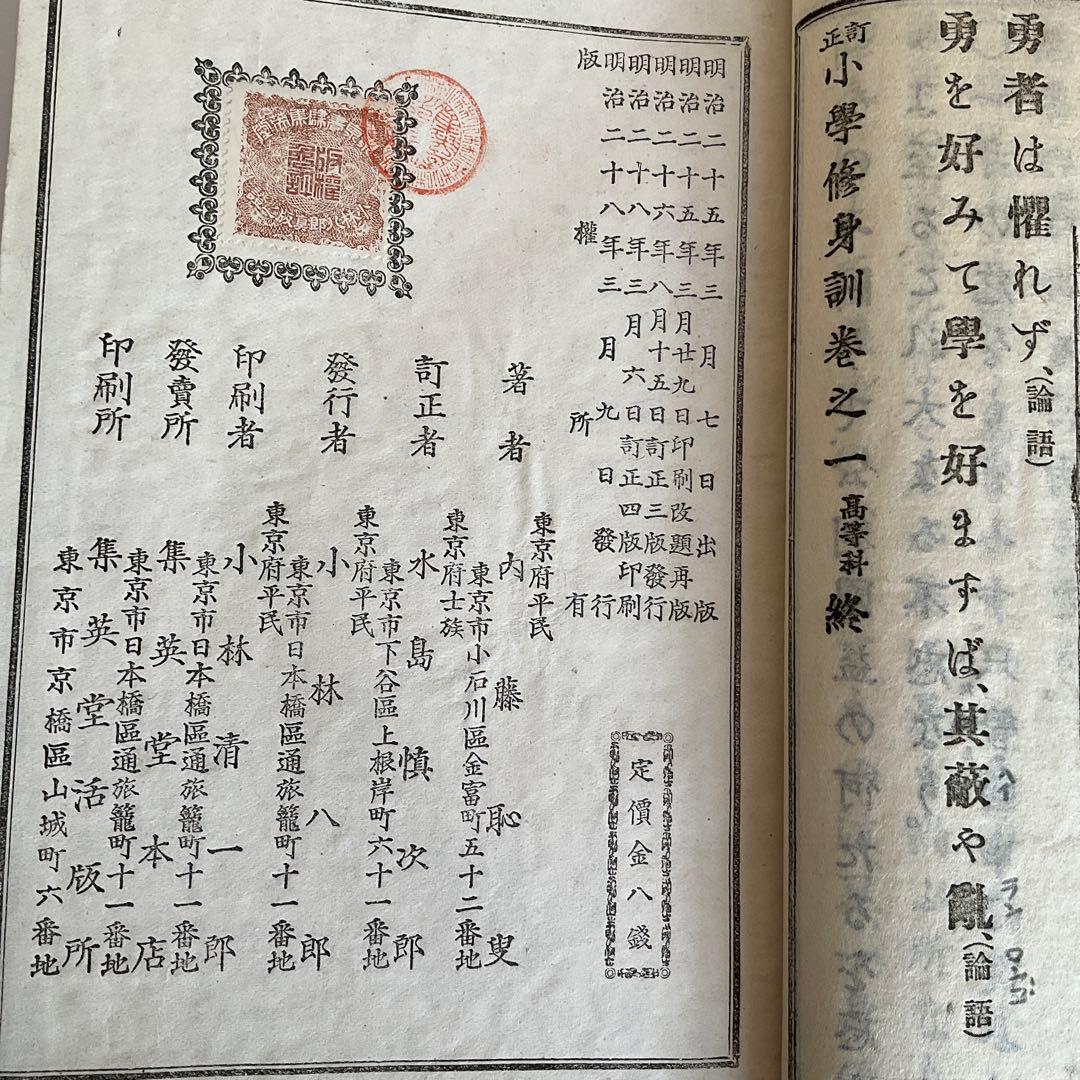 勇者は懼れず、(論語)
勇を好みて學を好まずば、其蔽や亂、(論語)
訂正小學修身訓卷之一 高等科 終
明治二十五年三月七日出版
明治二十五年三月廿九日印刷改題再版
明治二十六年八月十五日訂正三版發行
明治二十八年三月六日訂正四版印刷
明治二十八年三月九日發行
版權所有
定價金八錢
著者
東京府平民
内藤恥叟
東京市小石川區金富町五十二番地
訂正者
東京府士族
水島慎次郎
東京市下谷區上根岸町六十一番地
發行者
東京府平民
小林八郎
東京市日本橋區通旅籠町十一番地
印刷者
東京府平民
小林清一郎
東京市日本橋區通旅籠町十一番地
發賣所
集英堂本店
東京市日本橋區通旅籠町十一番地
印刷所
集英堂活版所
東京市京橋區山城町六番地